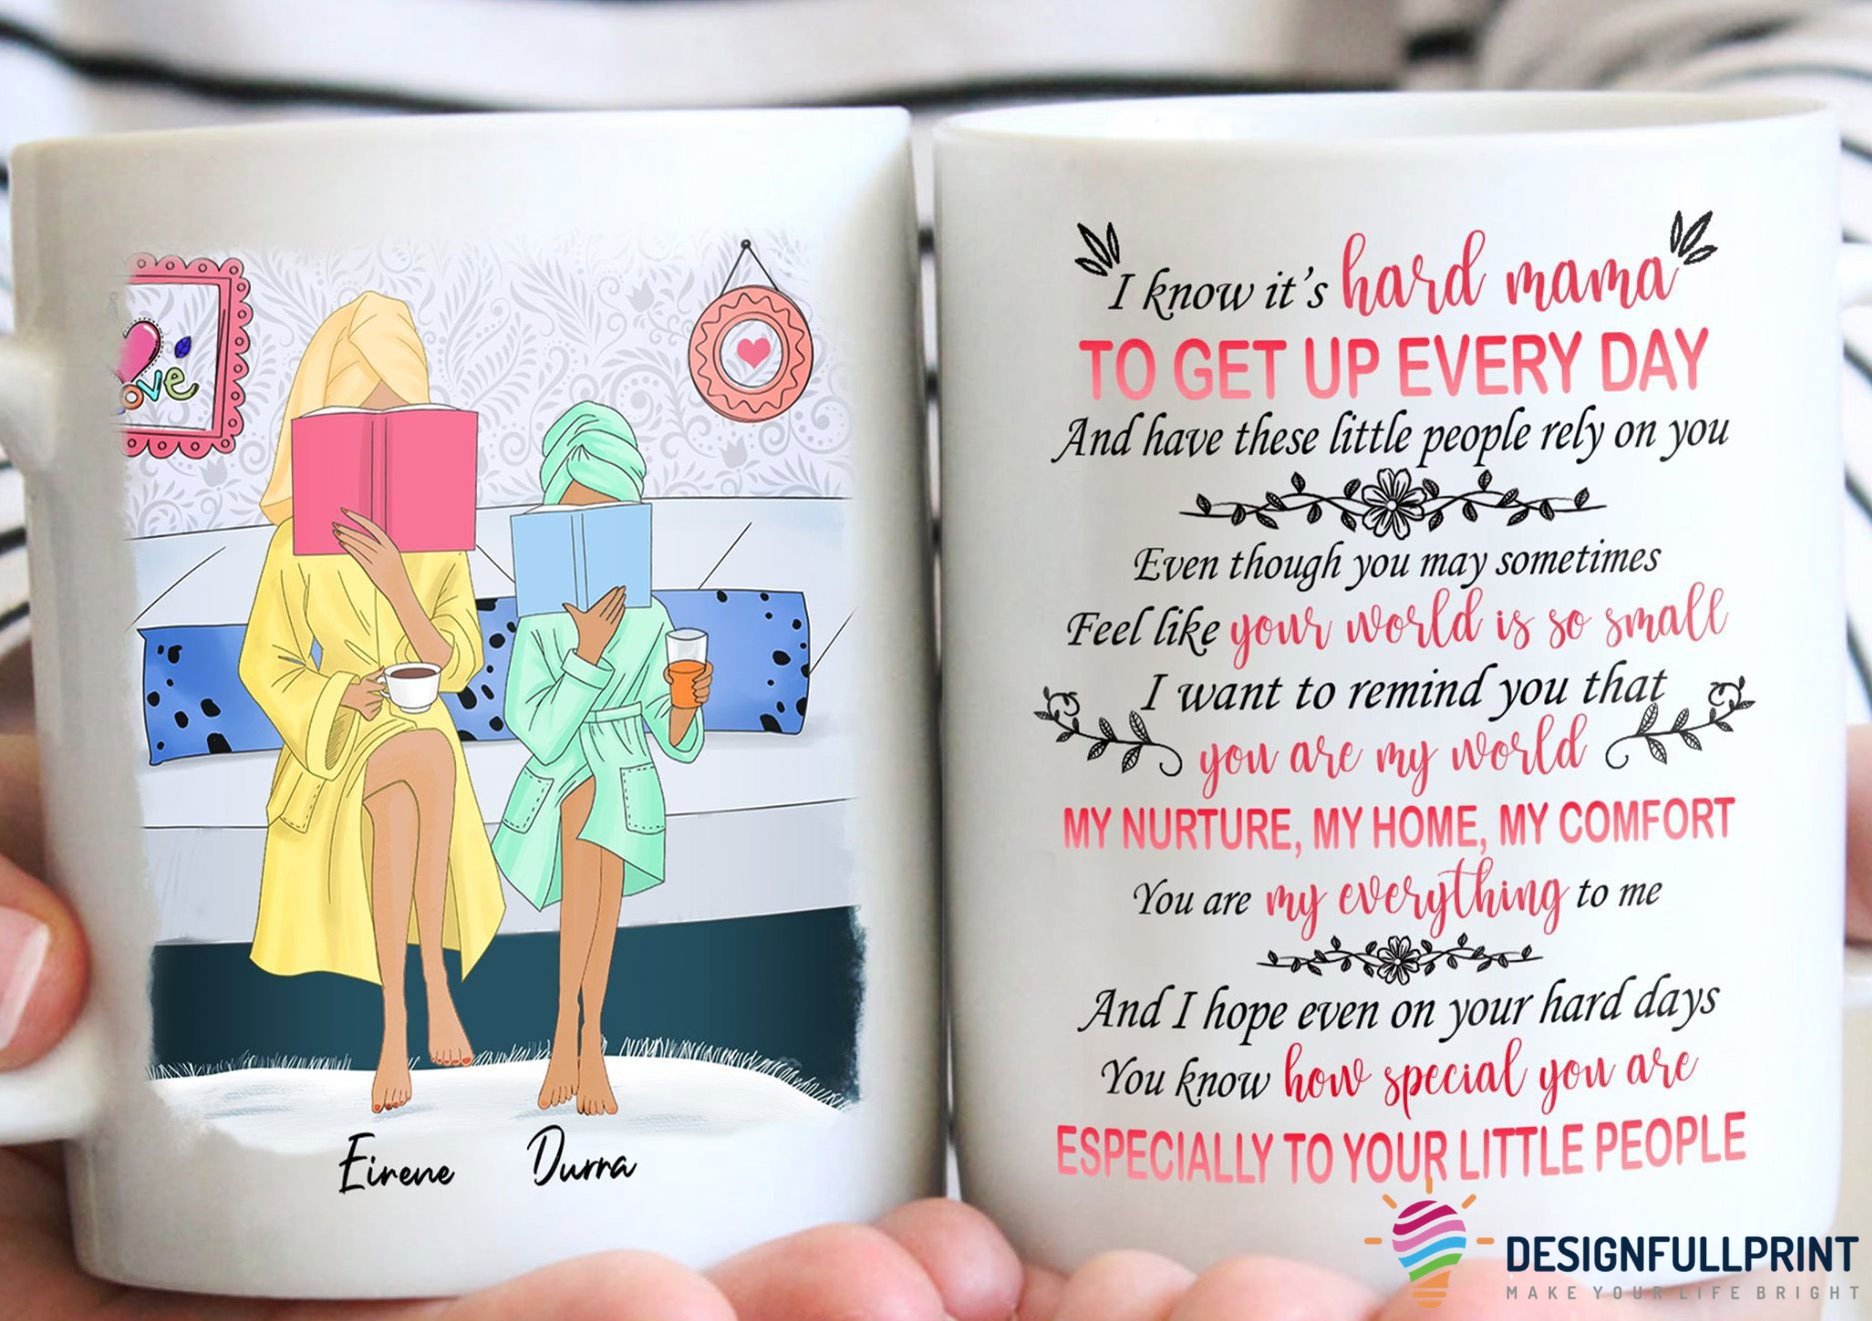 ove
Eirene Durra
I know it's hard mama
TO GET UP EVERY DAY
And have these little people rely on you
Even though you may sometimes
Feel like your world is so small
I want to remind you that
you are my world
MY NURTURE, MY HOME, MY COMFORT
You are my everything to me
And I hope even on your hard days
You know how special you are
ESPECIALLY TO YOUR LITTLE PEOPLE
DESIGNFULLPRINT
MAKE YOUR LIFE BRIGHT